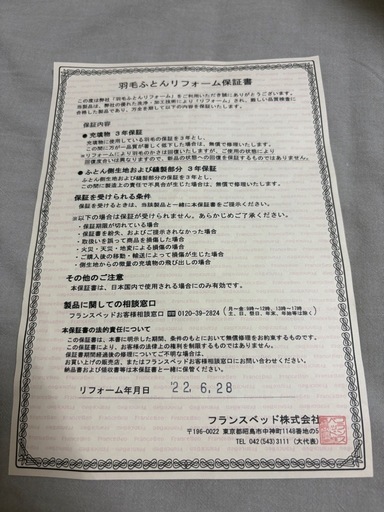 羽毛ふとんリフォーム保証書
この度は弊社「羽毛ふとんリフォーム」をご利用いただき誠にありがとうございます。
当製品は、弊社の優れた洗浄・加工技術により「リフォーム」され、厳しい品質検査に
合格した製品であり、万全を期して以下の内容を保証するものであります。
保証内容
● 充填物 3年保証
充填物に使用している羽毛の保証を3年とし、
この間に万が一品質が著しく低下した場合は、無償で修理いたします。
※リフォームにより羽毛のかさは回復いたしますが、ご使用の状態により
回復度合いは異なりますので、新品の状態への回復を保証するものではありません。
● ふとん側生地および縫製部分 3年保証
ふとん側生地および縫製部分の保証を3年とし、
この間に製造上の責任で不具合が生じた場合は、無償で修理いたします。
保証を受けられる条件
保証を受けるときは、当該製品と一緒に本保証書をご提示ください。
※以下の場合は保証が受けられません。あらかじめご了承ください。
・保証期限が切れている場合
・保証書を紛失、およびご提示されなかった場合
・取扱いを誤って商品を損傷した場合
・火災・天災・地変による損傷の場合
・ご購入後の移動・輸送によって損傷が生じた場合
・側生地からの微量の充填物の飛び出しの場合
その他のご注意
本保証書は、日本国内で使用される場合にのみ有効です。
製品に関しての相談窓口
フランスベッドお客様相談窓口 0120-39-2824 (月~金 9時~12時、13時~17時)
(土、日、祭日、年末、年始等は除く)
本保証書の法的責任について
この保証書は、本書に明示した期間、条件のもとにおいて無償修理をお約束するものです。
この保証書により、お客様の法律上の権利を制限するものではありません。
保証書期間経過後の修理についてご不明な場合は、
お買い上げの販売店、またはフランスベッドお客様相談窓口にお問い合わせください。
納品書および領収書等は本保証書と一緒に保管ください。
リフォーム年月日 '22.6.28
フランスベッド株式会社
〒196-0022 東京都昭島市中神町1148番地の5
TEL 042(543)3111(大代表)